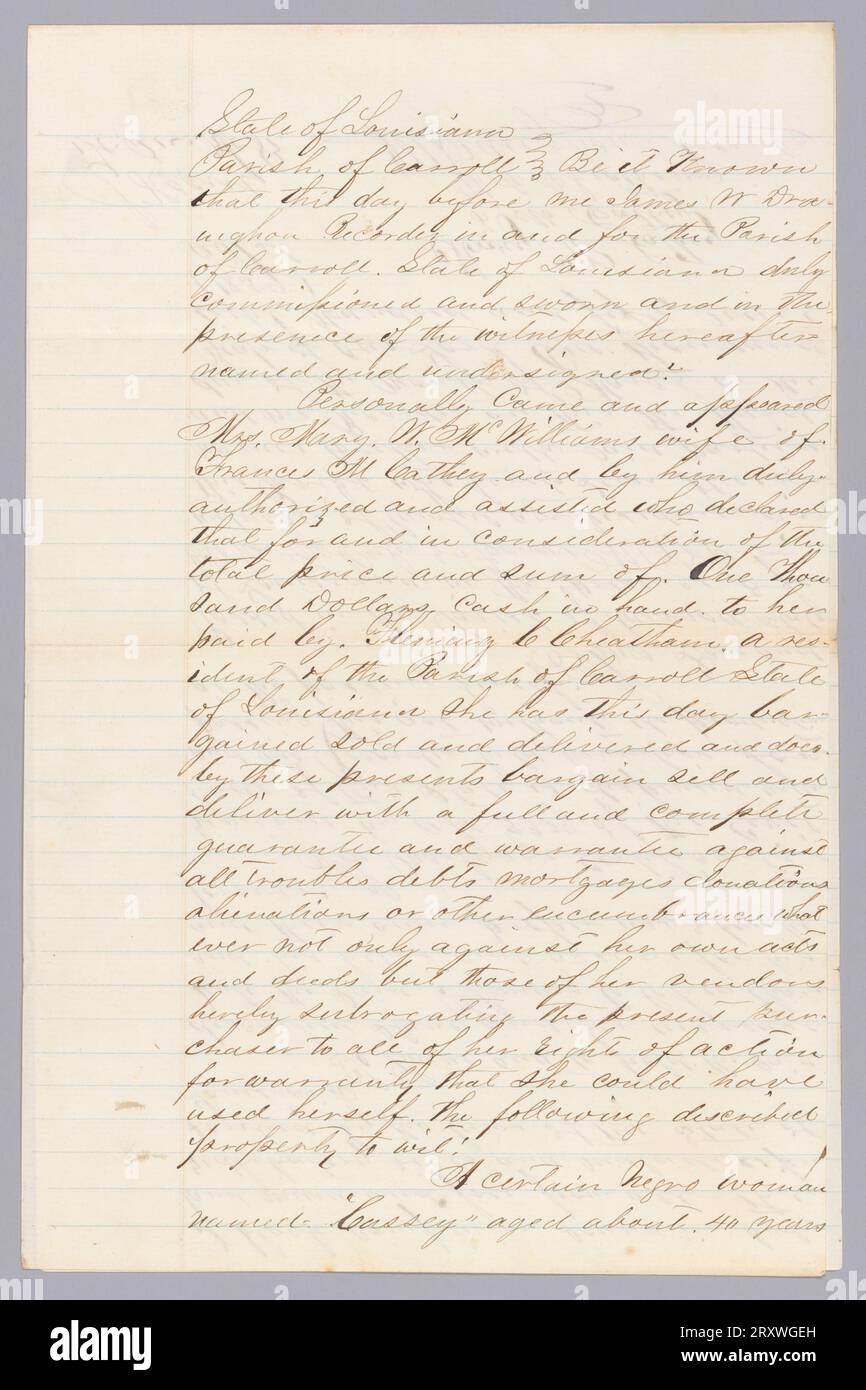 State of Louisiana
Parish of Carroll } Be it Known
that this day before me James W Dra-
ughon Recorder in and for the Parish
of Carroll. State of Louisiana duly
commissioned and sworn and in the
presence of the witnesses hereafter
named and undersigned!
Personally Came and appeared
Mrs. Mary. W. McWilliams wife of.
Frances M Cathey and by him duly
authorized and assisted who declared
that for and in consideration of the
total price and sum of. One Thou
sand Dollars, cash in hand. to her
paid by. Fleming C Cheatham. a res-
ident of the Parish of Carroll State
of Louisiana she has this day bar-
gained sold and delivered and does.
by these presents bargain sell and
deliver with a full and complete
guarantee and warrantee against
all troubles debts mortgages donations
alienations or other encumbrances what
ever not only against her own acts
and deeds but those of her vendors
hereby subrogating the present pur-
chaser to all of her rights of action
for warranty that she could have
used herself. the following described
property to wit!
A certain Negro woman
named "Cassey" aged about. 40 years
alamy
alamy
Image ID: 2RXWGEH
www.alamy.com